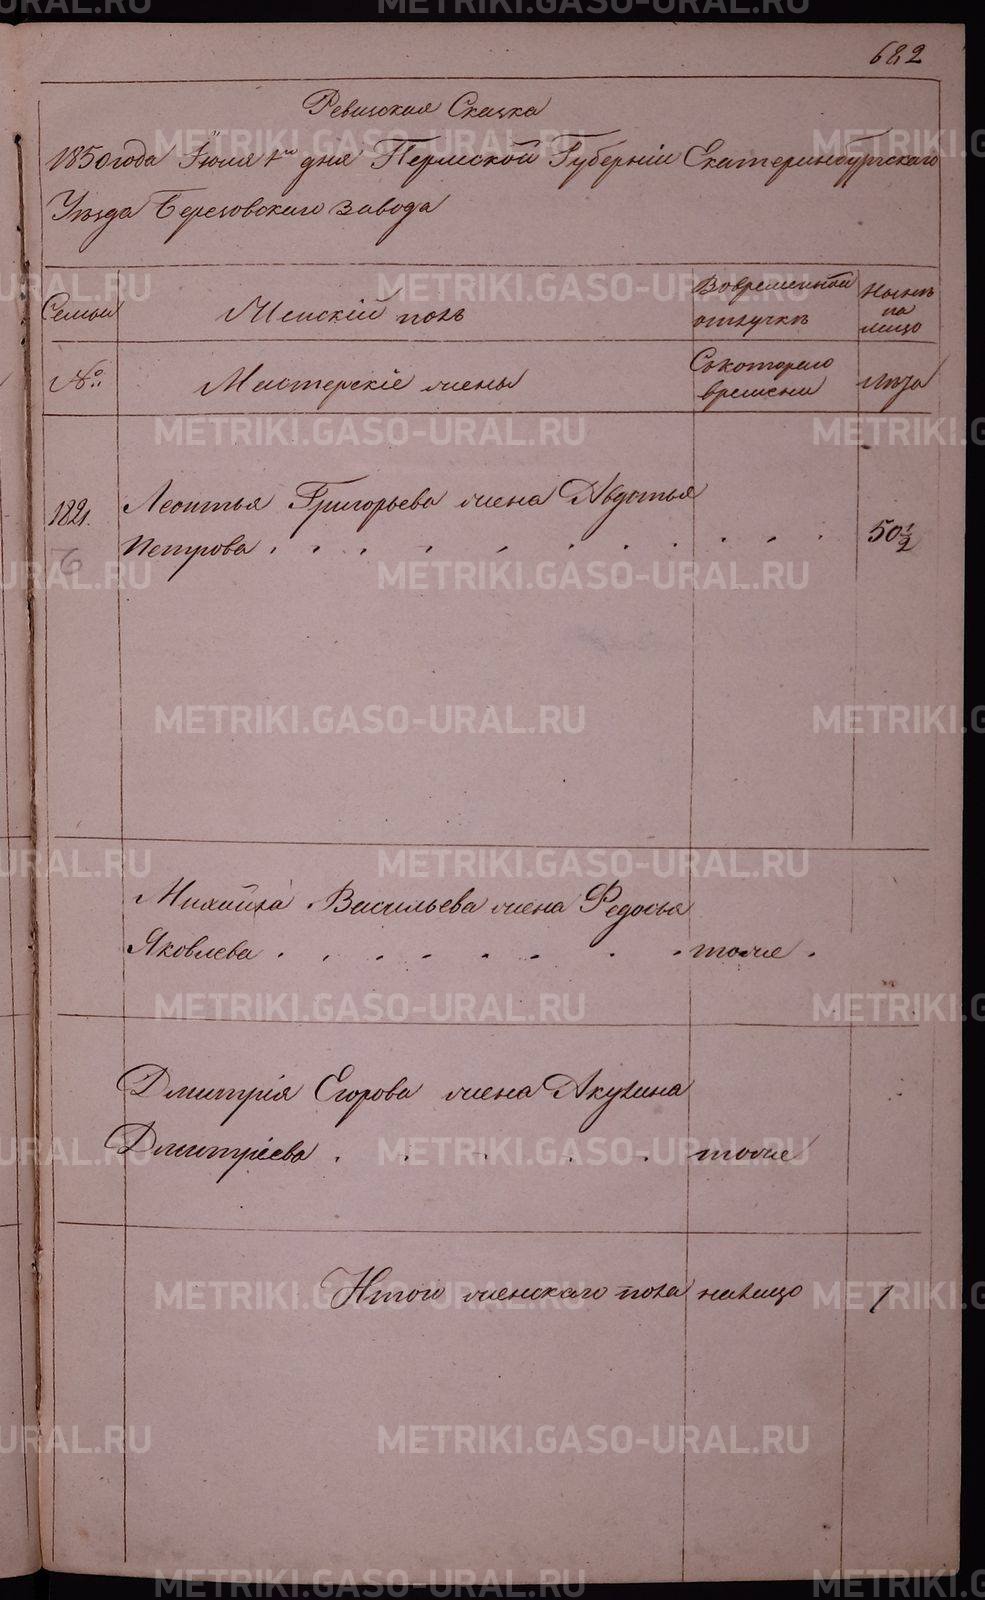 682
Ревизская Сказка
1850 года Іюля 1го дня Пермской Губерніи Екатеринбургскаго
Уѣзда Березовскаго завода
Семьи
Женскій полъ
Во временной отлучкѣ
Нынѣ на лицо
№
Мастерскіе жены
Съ котораго времени
Лѣта
182.
Леонтья Григорьева жена Авдотья
Петрова . . . . . . . . . . . 50 1/2
6
Михайла Васильева жена Федосья
Яковлева . . . . . . . . тоже .
Дмитрія Егорова жена Акулина
Дмитріева . . . . . тоже
Итого женскаго пола на лицо 1
METRIKI.GASO-URAL.RU